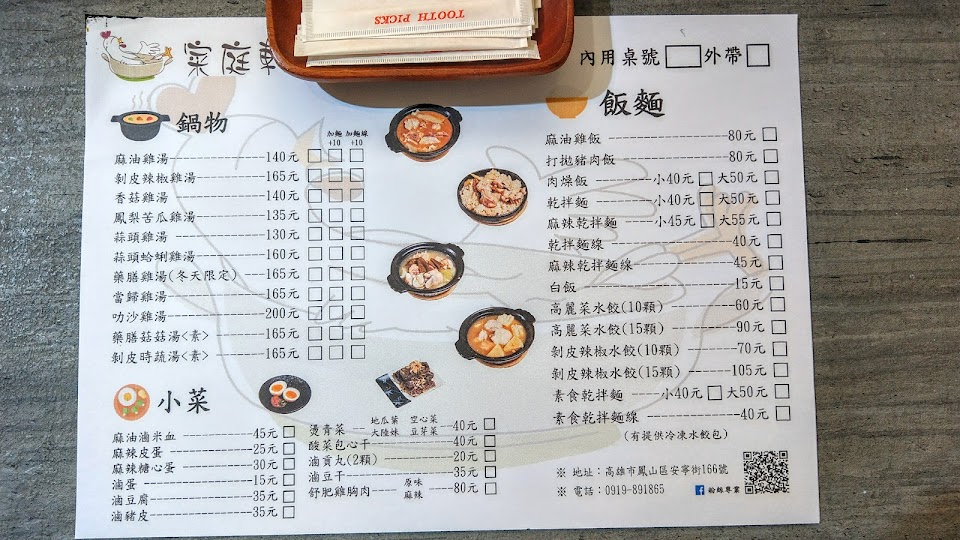 TOOTH PICKS
家庭
內用桌號 外帶
鍋物
加麵 加麵線
+10 +10
麻油雞湯 140元
剝皮辣椒雞湯 165元
香菇雞湯 140元
鳳梨苦瓜雞湯 135元
蒜頭雞湯 130元
蒜頭蛤蜊雞湯 160元
藥膳雞湯(冬天限定) 165元
當歸雞湯 165元
叻沙雞湯 200元
藥膳菇菇湯<素> 165元
剝皮時蔬湯<素> 165元
小菜
麻油滷米血 45元
麻辣皮蛋 25元
麻辣糖心蛋 30元
滷蛋 15元
滷豆腐 35元
滷豬皮 35元
燙青菜 地瓜葉 空心菜 大陸妹 豆芽菜 40元
酸菜包心干 40元
滷貢丸(2顆) 20元
滷豆干 35元
舒肥雞胸肉 原味 麻辣 80元
飯麵
麻油雞飯 80元
打拋豬肉飯 80元
肉燥飯 小40元 大50元
乾拌麵 小40元 大50元
麻辣乾拌麵 小45元 大55元
乾拌麵線 40元
麻辣乾拌麵線 45元
白飯 15元
高麗菜水餃(10顆) 60元
高麗菜水餃(15顆) 90元
剝皮辣椒水餃(10顆) 70元
剝皮辣椒水餃(15顆) 105元
素食乾拌麵 小40元 大50元
素食乾拌麵線 40元
(有提供冷凍水餃包)
※ 地址：高雄市鳳山區安寧街166號
※ 電話：0919-891865
粉絲專業